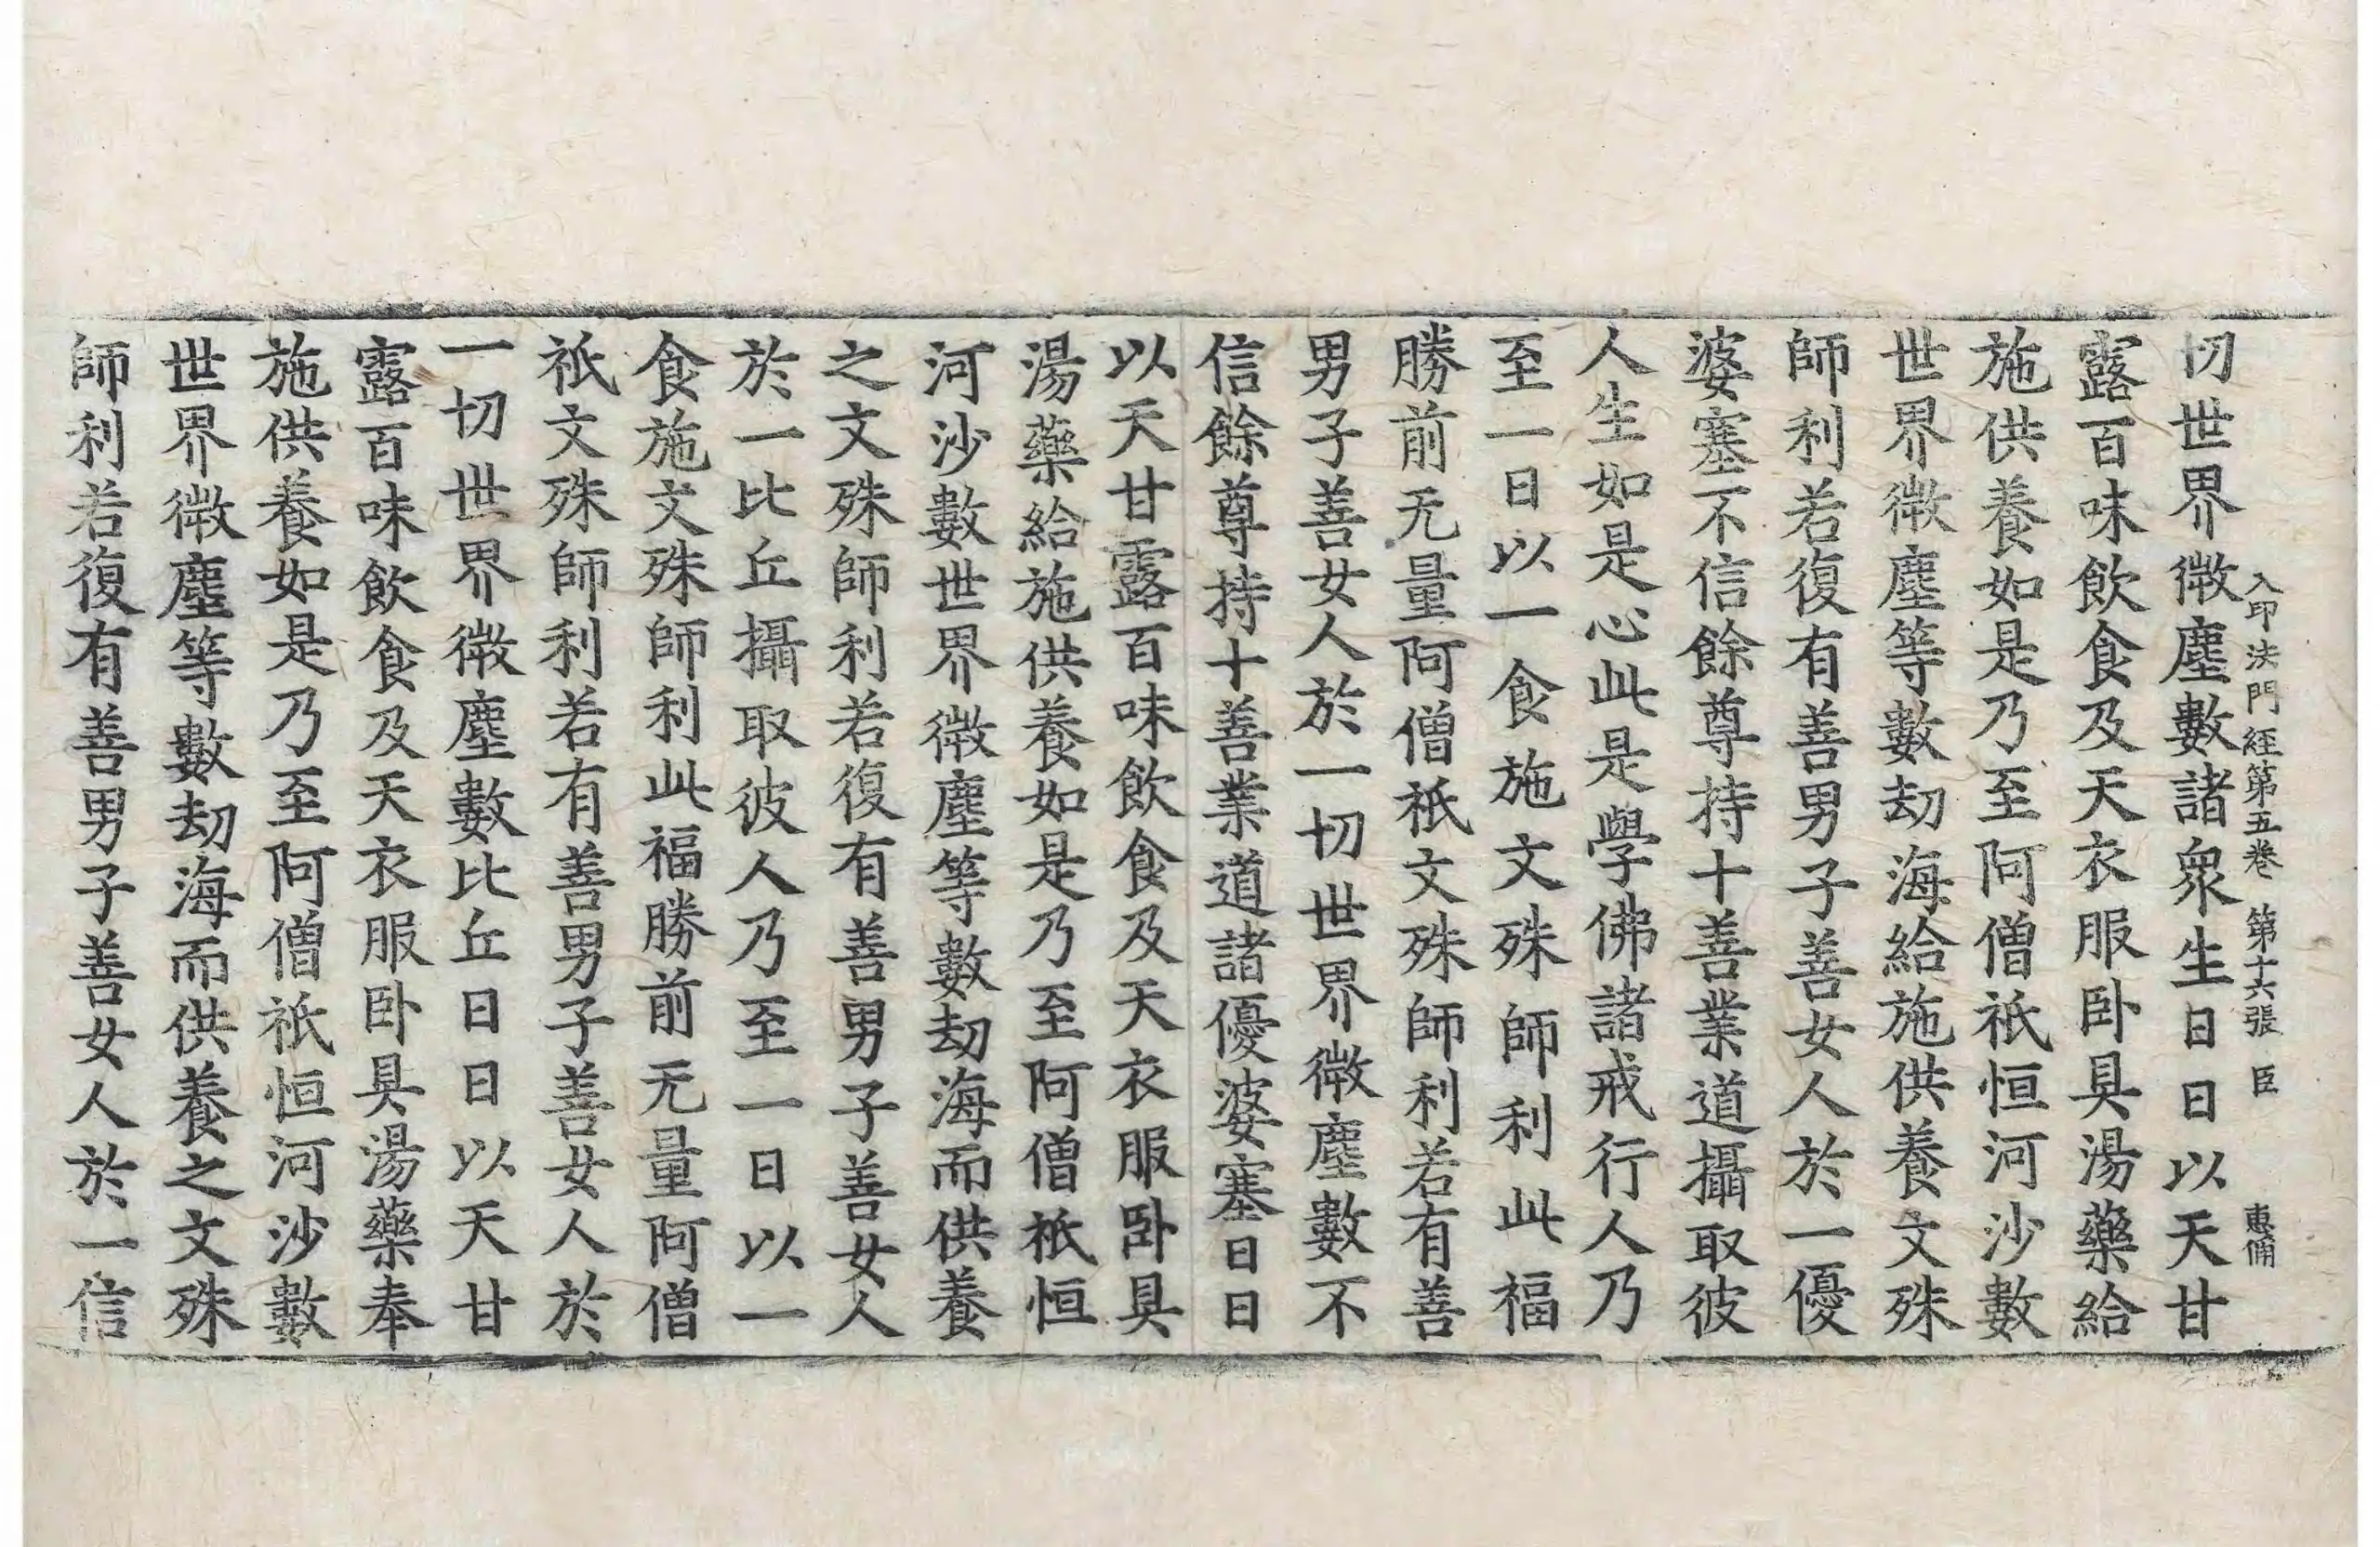 入印法門經第五卷 第十六張 臣 惠備
切世界微塵數諸衆生日日以天甘
露百味飲食及天衣服卧具湯藥給
施供養如是乃至阿僧祇恒河沙數
世界微塵等數劫海給施供養文殊
師利若復有善男子善女人於一優
婆塞不信餘尊持十善業道攝取彼
人生如是心此是學佛諸戒行人乃
至一日以一食施文殊師利此福
勝前无量阿僧祇文殊師利若有善
男子善女人於一切世界微塵數不
信餘尊持十善業道諸優婆塞日日
以天甘露百味飲食及天衣服卧具
湯藥給施供養如是乃至阿僧祇恒
河沙數世界微塵等數劫海而供養
之文殊師利若復有善男子善女人
於一比丘攝取彼人乃至一日以一
食施文殊師利此福勝前无量阿僧
祇文殊師利若有善男子善女人於
一切世界微塵數比丘日日以天甘
露百味飲食及天衣服卧具湯藥奉
施供養如是乃至阿僧祇恒河沙數
世界微塵等數劫海而供養之文殊
師利若復有善男子善女人於一信